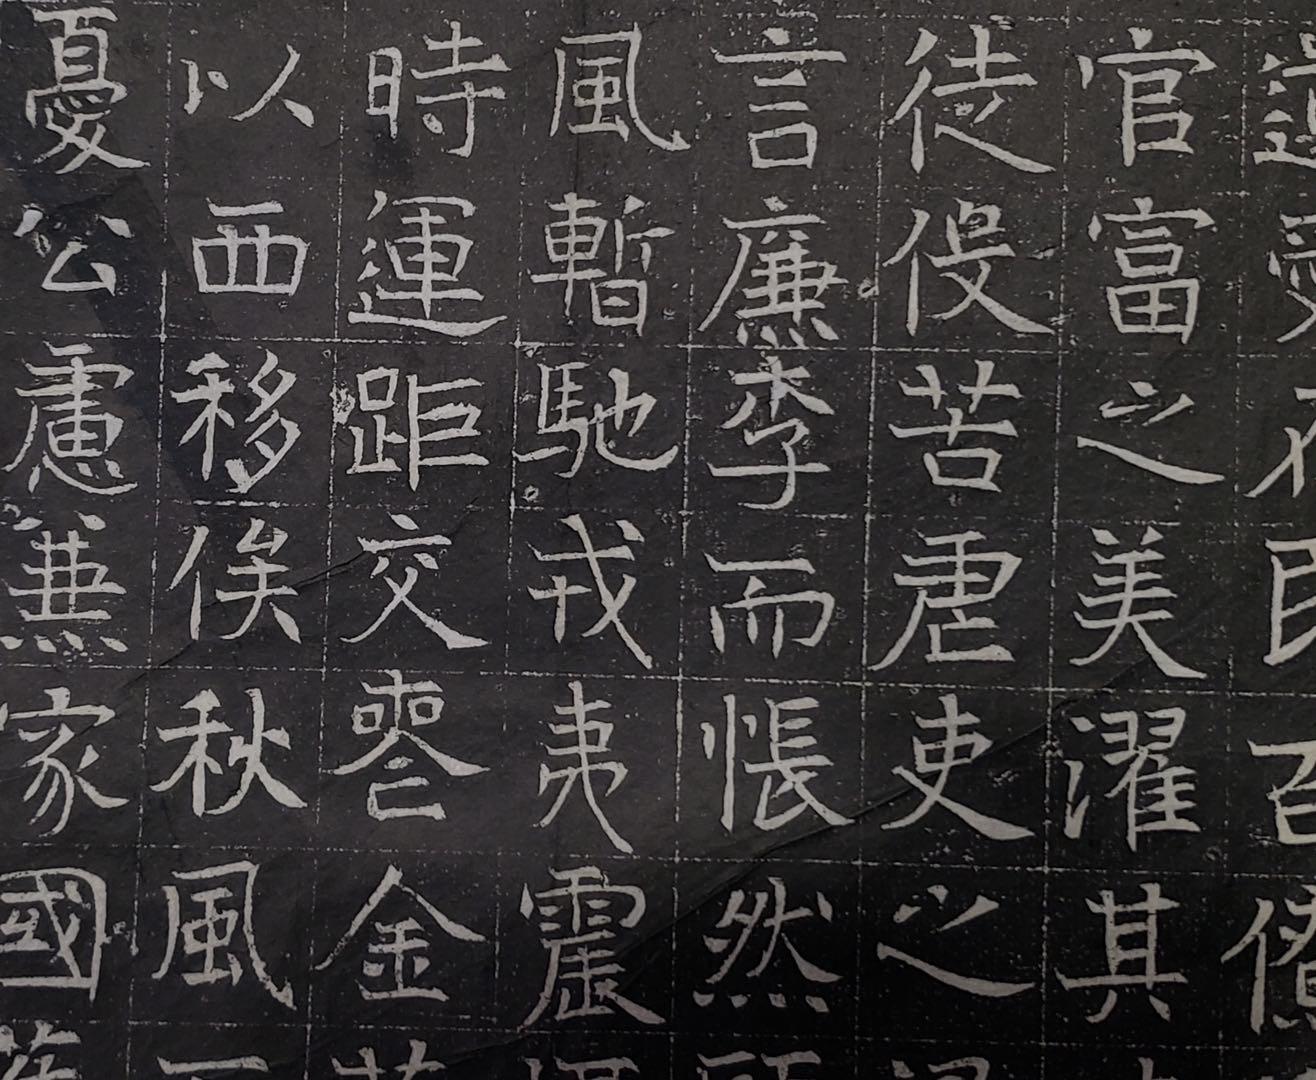 官富之美濯其
徒伇苦虐吏之
言廉李而悵然
風暫馳戎夷震
時運距交喪金
以西移俟秋風
憂公慮兼家國